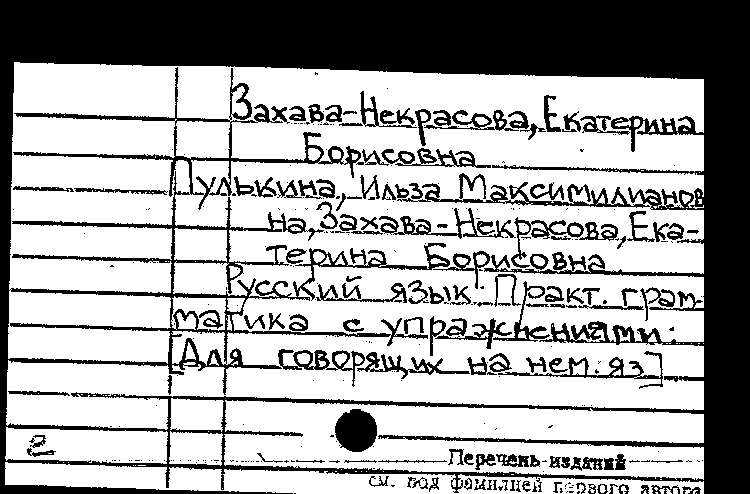 Захава-Некрасова, Екатерина
Борисовна
Пулькина, Ильза Максимилианов
на, Захава-Некрасова, Ека-
терина Борисовна.
Русский язык: Практ. грам-
матика с упражнениями:
[Для говорящих на нем. яз]
г
Перечень изданий
см. под фамилией первого автора